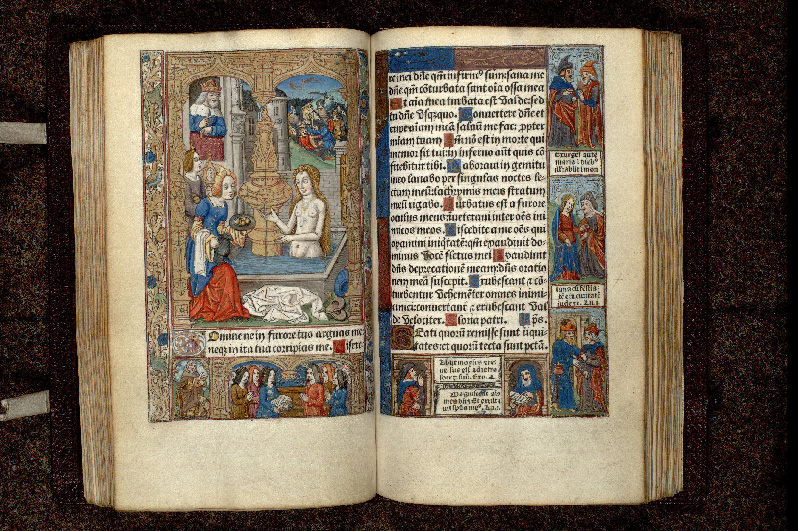 Omine ne in furore tuo arguas me
neq; in ira tua corripias me. Misere
re mei dñe qm̃ infirmꝰ sum: sana me
dñe qm̃ cõturbata sunt oīa ossa mea
Et aīa mea turbata est valde: sed
tu dñe vsq̃quo. Conuertere dñe et
eripe aīam meã: saluũ me fac propter
miam̃ tuam. Qm̃ nõ est in morte qui
memor sit tui: in inferno aũt quis cõ
fitebitur tibi. Laboraui in gemitu
meo lauabo per singulas noctes le-
ctum meũ: lachrymis meis stratum
meũ rigabo. Turbatus est a furore
oculus meus: inueteraui inter oēs ini
micos meos. Discedite a me oēs qui
operamini iniq̃tatẽ: qm̃ exaudiuit do-
minus vocẽ fletus mei. Exaudiuit
dñs deprecationẽ meam: dñs oratio
nem meã suscepit. Erubescant & cõ-
turbentur vehemẽter omnes inimi-
ci mei: conuertant̃ & erubescant val
de velociter. Gloria patri.
Beati quorũ remisse sunt iniqui
tates: et quorũ tecta sunt pctã.